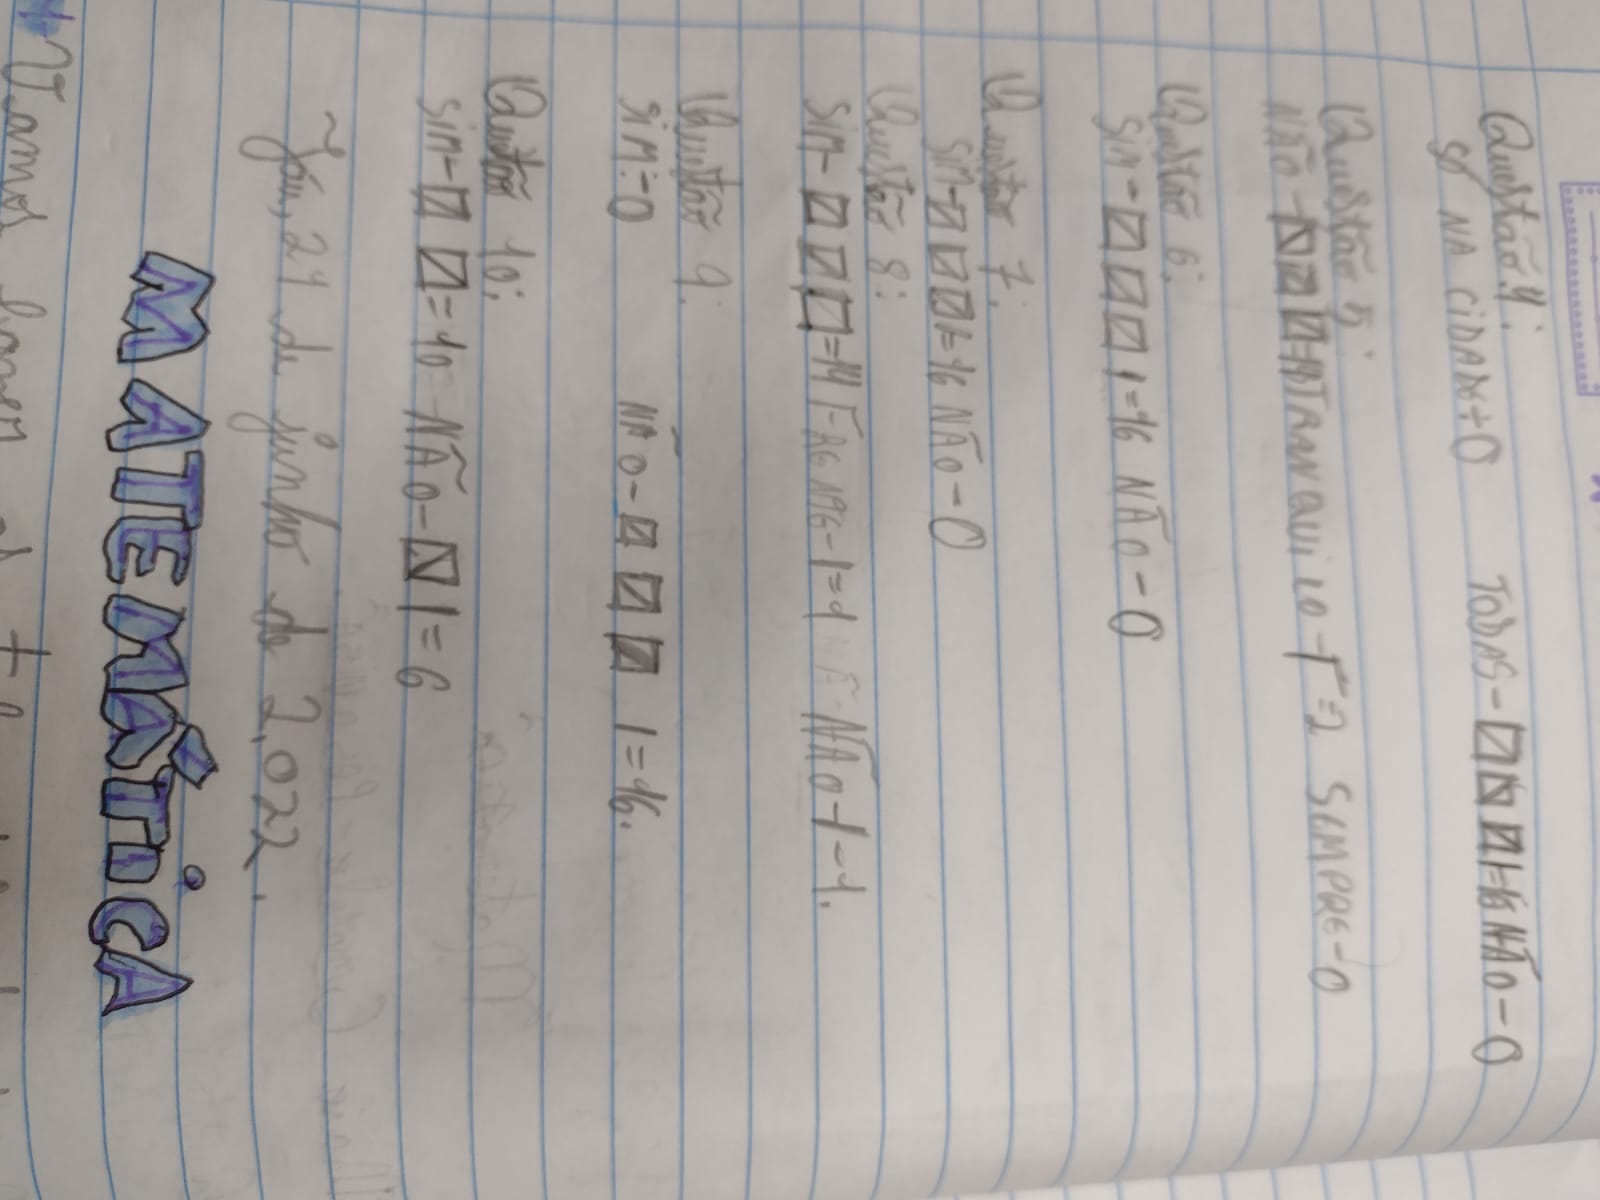 Questão 4:
Só NA CIDADE-0 TODAS- 1=16 NÃO-0
Questão 5:
NÃO- TRANQUILO-1=2 SEMPRE-0
Questão 6:
SIM- 1=16 NÃO-0
Questão 7:
SIM- 1=16 NÃO-0
Questão 8:
SIM- =14 NÃO-1-1.
Questão 9:
SIM:-0 NÃO- 1=16.
Questão 10:
SIM- =10 NÃO- 1=6
21 de junho de 2.022.
MATEMÁTICA
Vamos fazer